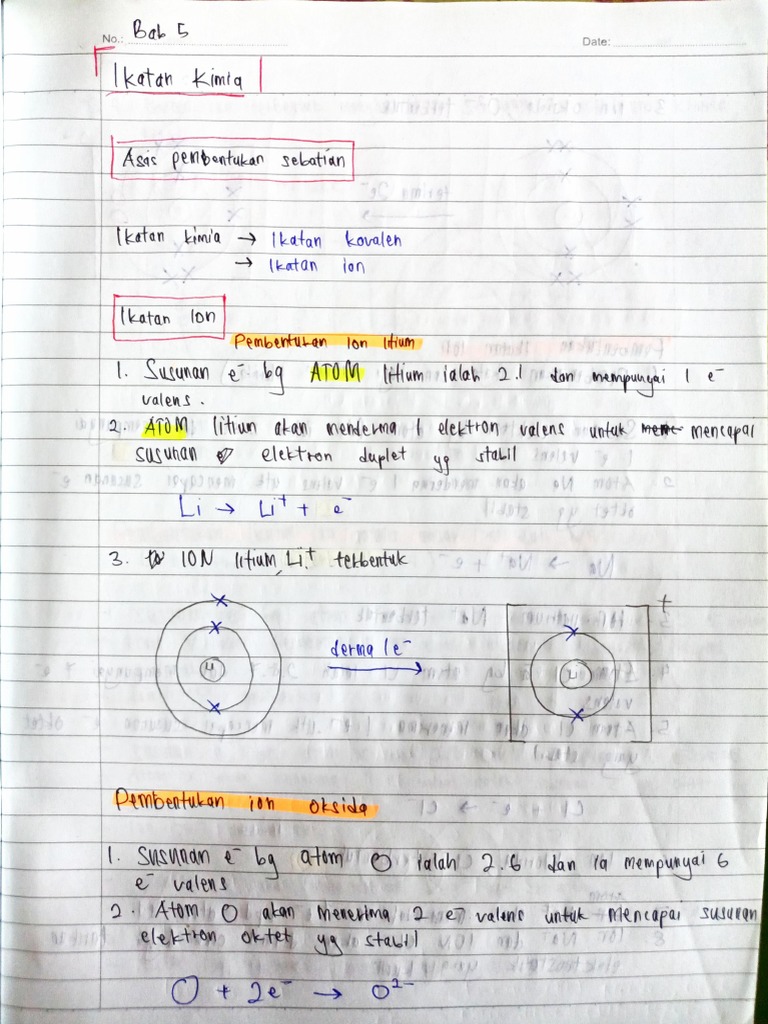 No.: Bab 5
Date:
Ikatan Kimia
Asas pembentukan sebatian
Ikatan kimia → Ikatan kovalen
→ Ikatan ion
Ikatan Ion
Pembentukan Ion litium
1. Susunan e⁻ bg ATOM litium ialah 2.1 dan mempunyai 1 e⁻
valens.
2. ATOM litium akan menderma 1 elektron valens untuk mencapai
susunan elektron duplet yg stabil
Li → Li⁺ + e⁻
3. ION litium, Li⁺ terbentuk
+
derma 1e⁻
Li
Li
Pembentukan ion oksida
1. Susunan e⁻ bg atom O ialah 2.6 dan ia mempunyai 6
e⁻ valens
2. Atom O akan menerima 2 e⁻ valens untuk mencapai susunan
elektron oktet yg stabil
O + 2e⁻ → O²⁻